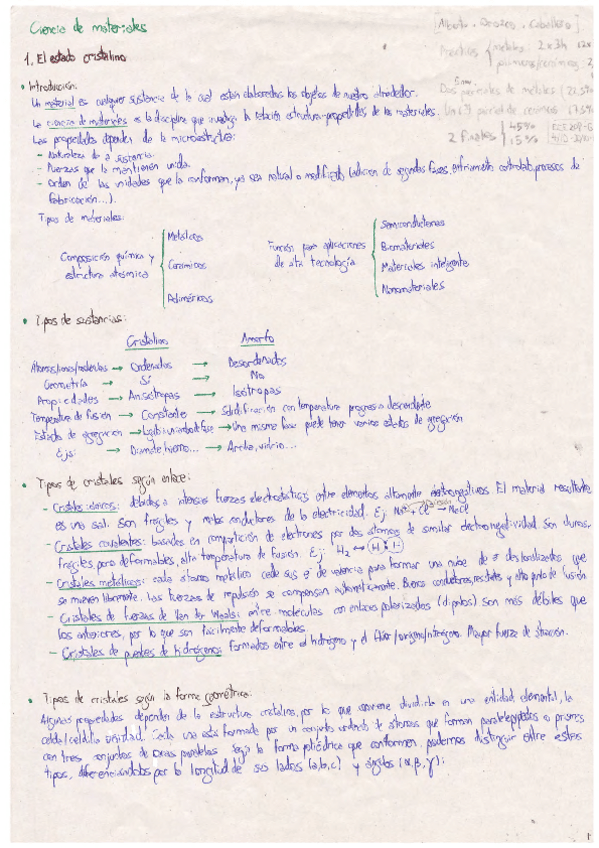 Ciencia de materiales
[Alberto, Orozco, Caballero]
Prácticas { metales 2x3h
polímeros/cerámicos
Dos parciales de metales (21.5%
2 Finales 45%
15%
1. El estado cristalino
• Introducción:
Un material es cualquier sustancia de la cual están elaborados los objetos de nuestro alrededor.
La ciencia de materiales es la disciplina que investiga la relación estructura-propiedades de los materiales.
Las propiedades dependen de la microestructura:
- Naturaleza de la sustancia.
- Fuerzas que la mantienen unida.
- Orden de las unidades que la conforman, ya sea natural o modificado (adición de segundas fases, enfriamiento controlado, procesos de
fabricación...).
Tipos de materiales:
Composición química y estructura atómica
Metálicos
Cerámicos
Poliméricos
Función para aplicaciones de alta tecnología
Semiconductores
Biomateriales
Materiales inteligente
Nanomateriales
• Tipos de sustancias:
Cristalino Amorfo
Átomos/iones/moléculas → Ordenados → Desordenados
Geometría → Sí → No
Propiedades → Anisótropas → Isótropas
Temperatura de fusión → Constante → Solidificación con temperatura progresiva descendente
Estados de agregación → → Una misma fase puete tener varios estados de agregación
Ejs: → Diamante, hierro... → Arcilla, vidrio...
• Tipos de cristales según enlace:
- Cristales iónicos: debidos a intensas fuerzas electrostáticas entre elementos altamente electronegativos. El material resultante
es una sal. Son frágiles y malos conductores de la electricidad. Ej: Na⁺ + Cl⁻ → NaCl
- Cristales covalentes: basados en compartición de electrones por dos átomos de similar electronegatividad. Son duros,
frágiles, poco deformables, alta temperatura de fusión. Ej: H₂ ↔ H : H
- Cristales metálicos: cada átomo metálico cede sus e⁻ de valencia para formar una nube de e⁻ deslocalizados que
se mueven libremente. Las fuerzas de repulsión se compensan automáticamente. Buenos conductores, y alto punto de fusión
- Cristales de fuerzas de Van der Waals: entre moléculas con enlaces polarizados (dipolos). Son más débiles que
los anteriores, por lo que son fácilmente deformables.
- Cristales de puentes de hidrógeno: formados entre el hidrógeno y el flúor/oxígeno/nitrógeno. Mayor fuerza de atracción.
• Tipos de cristales según la forma geométrica:
Algunas propiedades dependen de la estructura cristalina, por lo que conviene dividirla en una entidad elemental, la
celda/celdilla unidad. Cada una está formada por un conjunto ordenado de átomos que forman paralelepípedos o prismas
con tres conjuntos de caras paralelas. Según la forma poliédrica que conformen, podremos distinguir entre estos
tipos, diferenciándolos por la longitud de sus lados (a,b,c) y ángulos (α,β,γ):
1